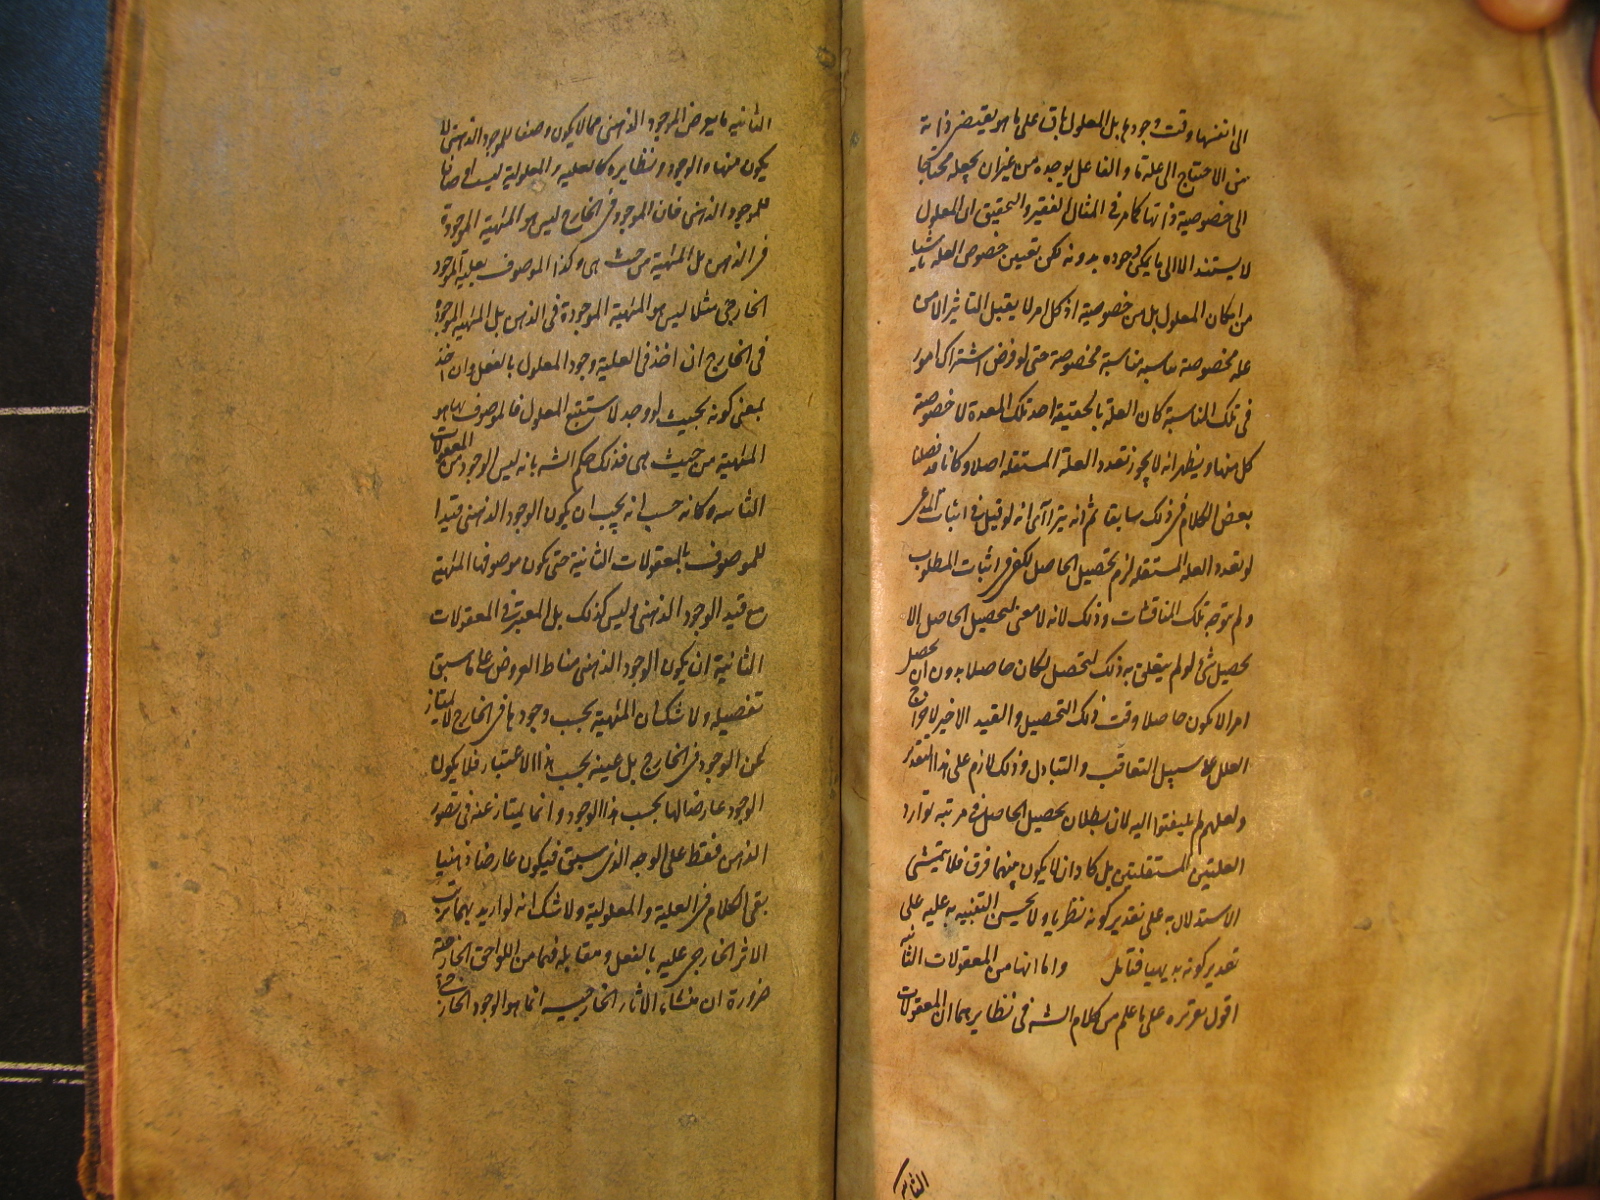 الى انفسها وقت وجودها بل المعلول باق على ما هو يقتضى ذاته
من الاحتياج الى علة ما والفاعل يوجده من غير ان يجعله محتاجا
الى خصوصية ذاتها كما مر فى المثال الفقير والتحقيق ان المعلول
لا يستند الا الى ما يمكن وجوده بدونه لكن تعيين خصوص العلة ناشيا
من امكان المعلول بل من خصوصية اذ كل امر لا يقبل التاثير الا من
علة مخصوصة مناسبة مناسبة مخصوصة حتى لو فرض اشتراك امور
فى تلك المناسبة كان العلة بالحقيقة احد تلك المعدة لا خصوصية
كل منها ويظهر انه لا يجوز تعدد العلة المستقلة اصلا وكانا قد فصلنا
بعض الكلام فى ذلك سابقا ثم انه يتراآى انه لو قيل فى اثبات المدعى
لو تعدد العلة المستقلة لزم تحصيل الحاصل لكفى فى اثبات المطلوب
ولم توجه تلك المناقشات وذلك لانه لا معنى لتحصيل الحاصل الا
تحصيل شئ لو لم يتعلق به ذلك التحصل لكان حاصلا بدون ان يحصل
امرا لا يكون حاصلا وقت ذلك التحصيل والقيد الاخير لاخراج
العلل على سبيل التعاقب والتبادل وذلك لازم على هذا التقدير
ولعلهم لم يلتفتوا اليه لان بطلان تحصيل الحاصل فى مرتبة توارد
العلتين المستقلتين بل كاد ان لا يكون بينهما فرق فلا يتمشى
الاستدلال به على تقدير كونه نظريا ولا يحسن التنبيه به عليه على
تقدير كونه بديهيا فتامل واما انها من المعقولات الثانية
اقول تقريره على ما علم من كلام الشه فى نظايرهما ان المعقولات
الثانية
الثانية ما يعرض الموجود الذهنى مما لا يكون وصفا للموجود الذهنى لا
يكون منها والوجود ونظايره كالعلية والمعلولية ليست اوصافا
للموجود الذهنى فان الموجود فى الخارج ليس هو المهية الموجودة
فى الذهن بل المهية من حيث هى وكذا الموصوف بعلية الموجود
الخارجى مثلا ليس هو المهية الموجودة فى الذهن بل المهية الموجودة
فى الخارج ان اخذ فى العلية وجود المعلول بالفعل وان اخذ
بمعنى كونه بحيث لو وجد لاستتبع المعلول فالموصوف بها هو
المهية من حيث هى فذلك حكم الشه بانه ليس الوجود من المعقولات
الثانية وكانه حسب انه يجب ان يكون الوجود الذهنى قيدا
للموصوف بالمعقولات الثانية حتى تكون موصوفها المهية
مع قيد الوجود الذهنى وليس كذلك بل المعتبر فى المعقولات
الثانية ان يكون الوجود الذهنى مناط العروض على ما سبق
تفصيله ولا شك ان المهية بحسب وجودها فى الخارج لا يمتاز
عن الوجود فى الخارج بل عينه بحسب هذا الاعتبار فلا يكون
الوجود عارضا لها بحسب هذا الوجود وانما يمتاز عنه فى تصور
الذهن فقط على الوجه الذى سبق فيكون عارضا ذهنيا
بقى الكلام فى العلية والمعلولية ولا شك انه لو اريد بهما ترتب
الاثر الخارجى عليه بالفعل ومقابله فهما من اللواحق الخارجية
ضرورة ان منشاء الاثار الخارجيه انما هو الوجود الخارجى